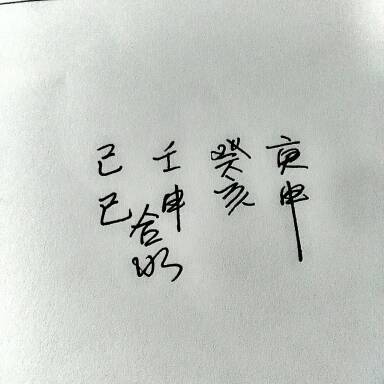 己 壬 癸 庚
巳 申 亥 申
合
水